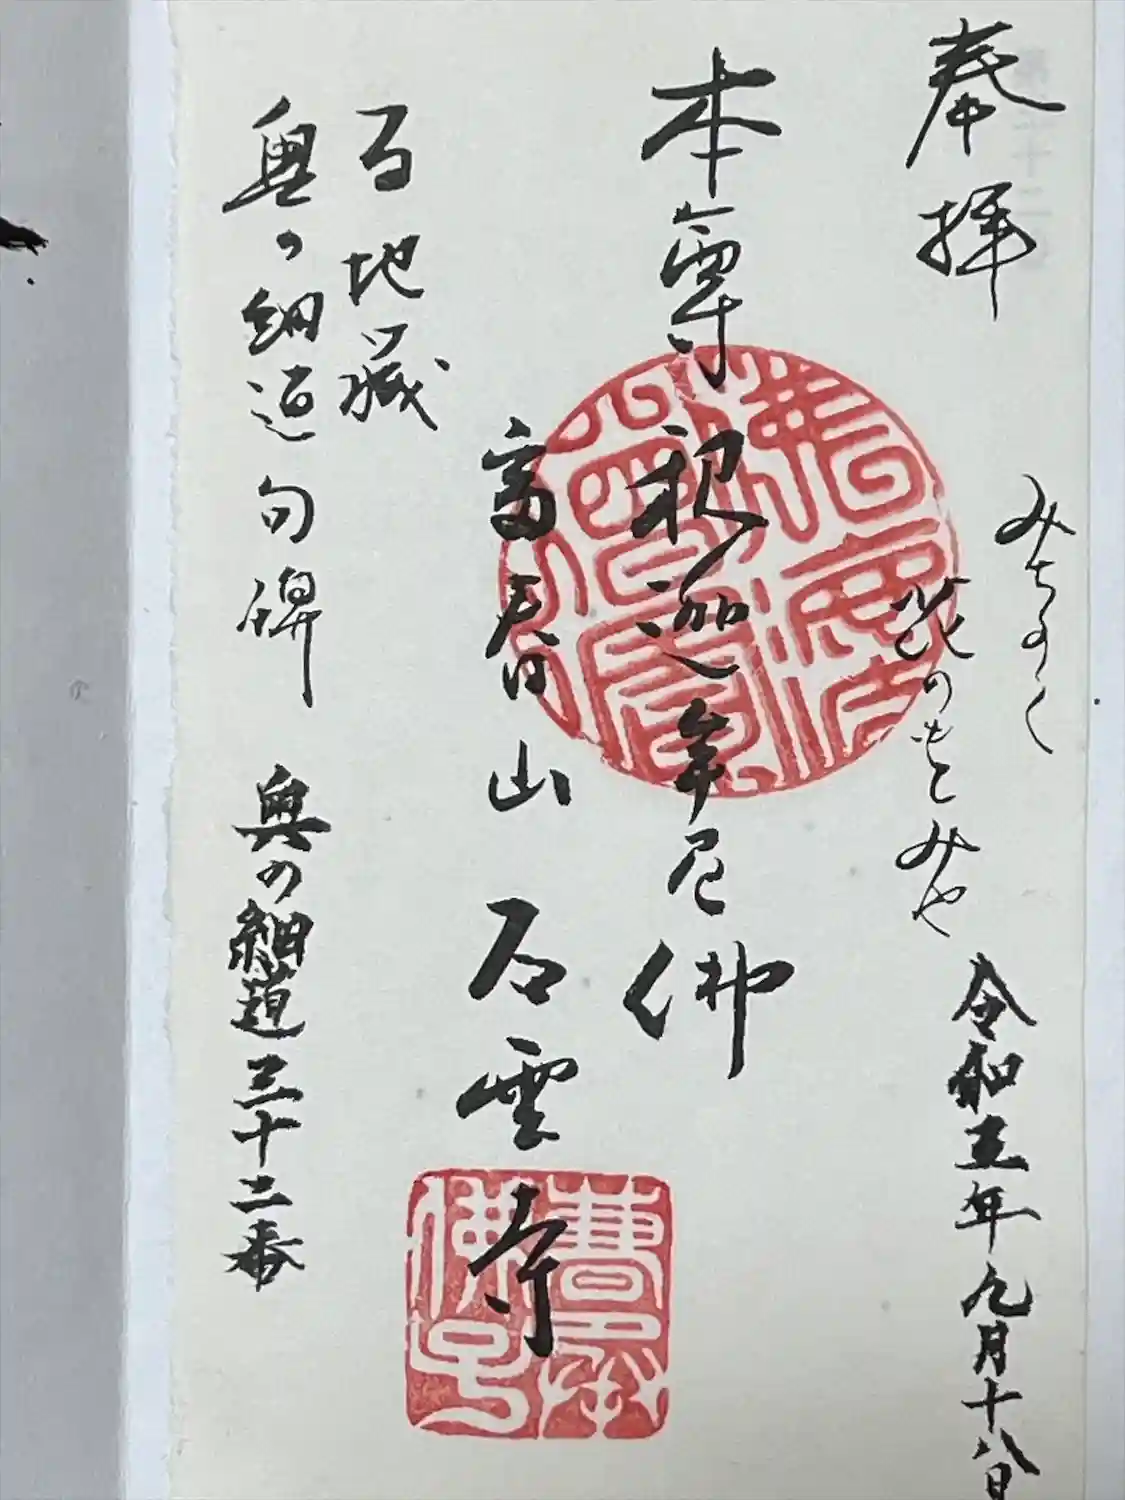 奉拝
みちのく
花のもとみや
令和五年九月十八日
本尊 釈迦牟尼佛
富春山 石雲寺
石地蔵
奥の細道句碑
奥の細道三十二番